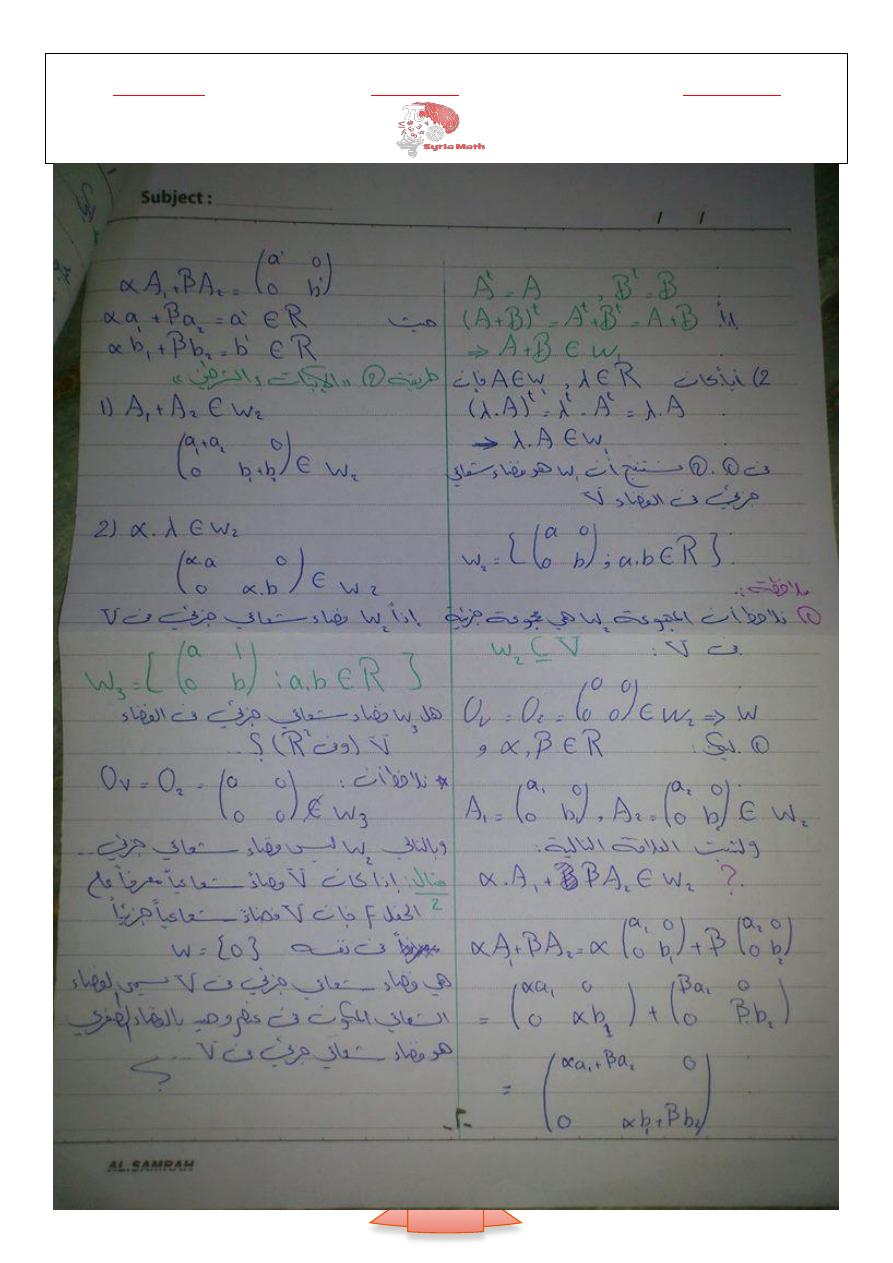 Syria Math
Subject :
/ /
A^t = A , B^t = B
(A+B)^t = A^t + B^t = A+B
⇒ A+B ∈ W₁
2) أياً كان λ ∈ R , A ∈ W₁ فإن
(λ.A)^t = λ^t . A^t = λ.A
→ λ.A ∈ W₁
من ①، ② نستنتج أن W₁ هو فضاء شعاعي
جزئي من الفضاء V
W₂ = { (a 0 ; 0 b) ; a,b ∈ R }
ملاحظة:
① نلاحظ أن المجموعة W₂ هي مجموعة جزئية
من V : W₂ ⊆ V
O_V = O₂ = (0 0 ; 0 0) ∈ W₂ ⇒ W
① ليكن: α, β ∈ R و
A₁ = (a₁ 0 ; 0 b₁) , A₂ = (a₂ 0 ; 0 b₂) ∈ W₂
ولنثبت العلاقة التالية:
α.A₁ + βA₂ ∈ W₂ ?
αA₁+βA₂ = α (a₁ 0 ; 0 b₁) + β (a₂ 0 ; 0 b₂)
= (αa₁ 0 ; 0 αb₁) + (βa₂ 0 ; 0 βb₂)
= (αa₁+βa₂ 0 ; 0 αb₁+βb₂)
αA₁+βA₂ = (a' 0 ; 0 b')
حيث αa₁ + βa₂ = a' ∈ R
αb₁ + βb₂ = b' ∈ R
طريقة ② «
1) A₁ + A₂ ∈ W₂
(a₁+a₂ 0 ; 0 b₁+b₂) ∈ W₂
2) α.λ ∈ W₂
(α.a 0 ; 0 α.b) ∈ W₂
إذاً W₂ فضاء شعاعي جزئي من V
W₃ = { (a 1 ; 0 b) : a,b ∈ R }
هل W₃ فضاء شعاعي جزئي من الفضاء
V (من R²) ؟..
* نلاحظ أن: O_V = O₂ = (0 0 ; 0 0) ∉ W₃
وبالتالي W₂ ليس فضاء شعاعي جزئي...
مثال 2: إذا كان V فضاءً شعاعياً معرفاً على
الحقل F فإن V فضاءً شعاعياً جزئياً
من نفسه W = {0}
هي فضاء شعاعي جزئي من V يسمى الفضاء
الشعاعي المكون من عنصر وحيد بالفضاء الصفري
هو فضاء شعاعي جزئي من V ... ؟
-٢-
AL.SAMRAH